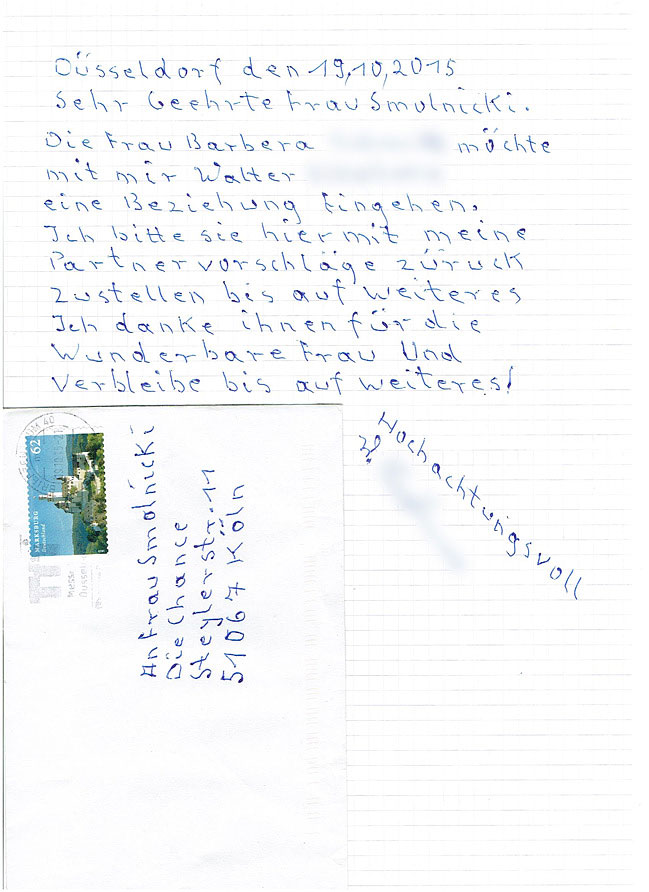 Düsseldorf den 19,10,2015
Sehr Geehrte Frau Smolnicki.
Die Frau Barbera möchte
mit mir Walter
eine Beziehung Eingehen.
Ich bitte sie hiermit meine
Partnervorschläge zürück
zustellen bis auf weiteres
Ich danke ihnen für die
Wunderbare Frau Und
Verbleibe bis auf weiteres!
Hochachtungsvoll
An Frau Smolnicki
Die Chance
Steylerstr. 11
51067 Köln
62
MARKSBURG
Deutschland
Messe